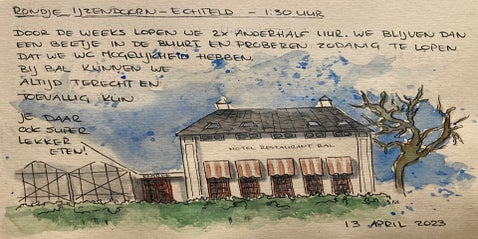 RONDJE IJZENDOORN - ECHTELD - 1:30 UUR
DOOR DE WEEKS LOPEN WE 2X ANDERHALF UUR. WE BLIJVEN DAN
EEN BEETJE IN DE BUURT EN PROBEREN ZODANIG TE LOPEN
DAT WE WC MOGELIJKHEID HEBBEN.
BIJ BAL KUNNEN WE
ALTIJD TERECHT EN
TOEVALLIG KUN
JE DAAR
OOK SUPER
LEKKER
ETEN!
HOTEL RESTAURANT BAL
13 APRIL 2023